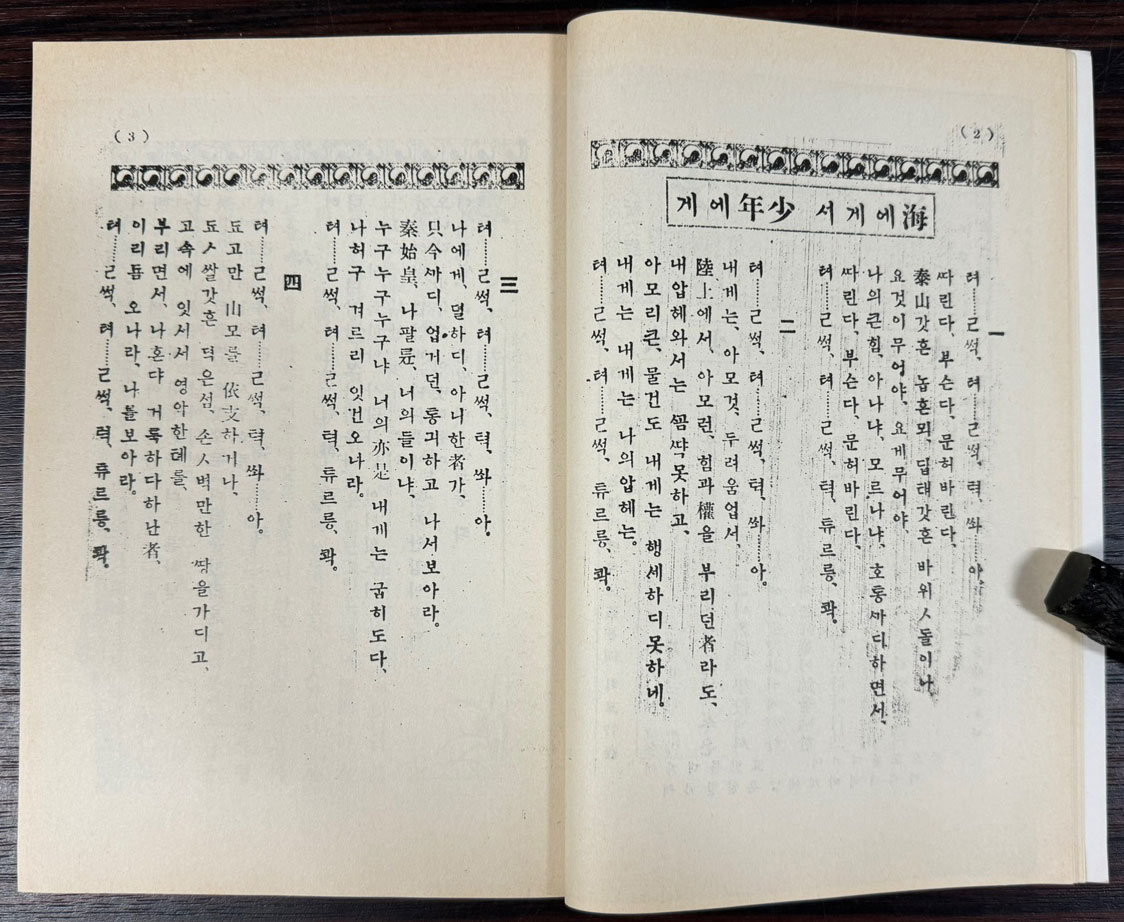 (2)
海에게서 少年에게
一
텨……ㄹ썩, 텨……ㄹ썩, 텩, 쏴……아.
ᄯᅡ린다, 부슨다, 문허바린다,
泰山갓흔 놉흔뫼, 딥태갓흔 바위ㅅ돌이나,
요것이무어야, 요게무어야,
나의큰힘, 아나냐, 모르나냐, 호통ᄭᅡ디하면서,
ᄯᅡ린다, 부슨다, 문허바린다,
텨……ㄹ썩, 텨……ㄹ썩, 텩, 튜르릉, 콱.
二
텨……ㄹ썩, 텨……ㄹ썩, 텩, 쏴……아.
내게는, 아모것, 두려움업서,
陸上에서, 아모런, 힘과權을 부리던者라도,
내압헤와서는 ᄭᅩᆷᄶᅡᆨ못하고,
아모리큰, 물건도 내게는 행세하디못하네.
내게는 내게는 나의압헤는.
텨……ㄹ썩, 텨……ㄹ썩, 튜르릉, 콱.
(3)
三
텨……ㄹ썩, 텨……ㄹ썩, 텩, 쏴……아.
나에게, 덜하디, 아니한者가,
只今ᄭᅡ디, 업거던, 통긔하고 나서보아라.
秦始皇, 나팔륜, 너의들이냐,
누구누구누구냐 너의亦是 내게는 굽히도다,
나허구 겨르리 잇건오나라.
텨……ㄹ썩, 텨……ㄹ썩, 텩, 튜르릉, 콱.
四
텨……ㄹ썩, 텨……ㄹ썩, 텩, 쏴……아.
됴고만 山모를 依支하거나,
됴ㅅ쌀갓흔 댝은섬, 손ㅅ벽만한 ᄯᅡᆼ을가디고,
고속에 잇서서 영악한톄를,
부리면서, 나혼댜 거룩하다하난者,
이리둄 오나라, 나를보아라.
텨……ㄹ썩, 텨……ㄹ썩, 텩, 튜르릉, 콱.